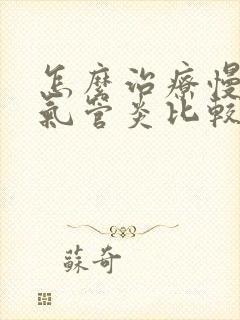 怎麼治療慢
氣管炎比較
蘇奇